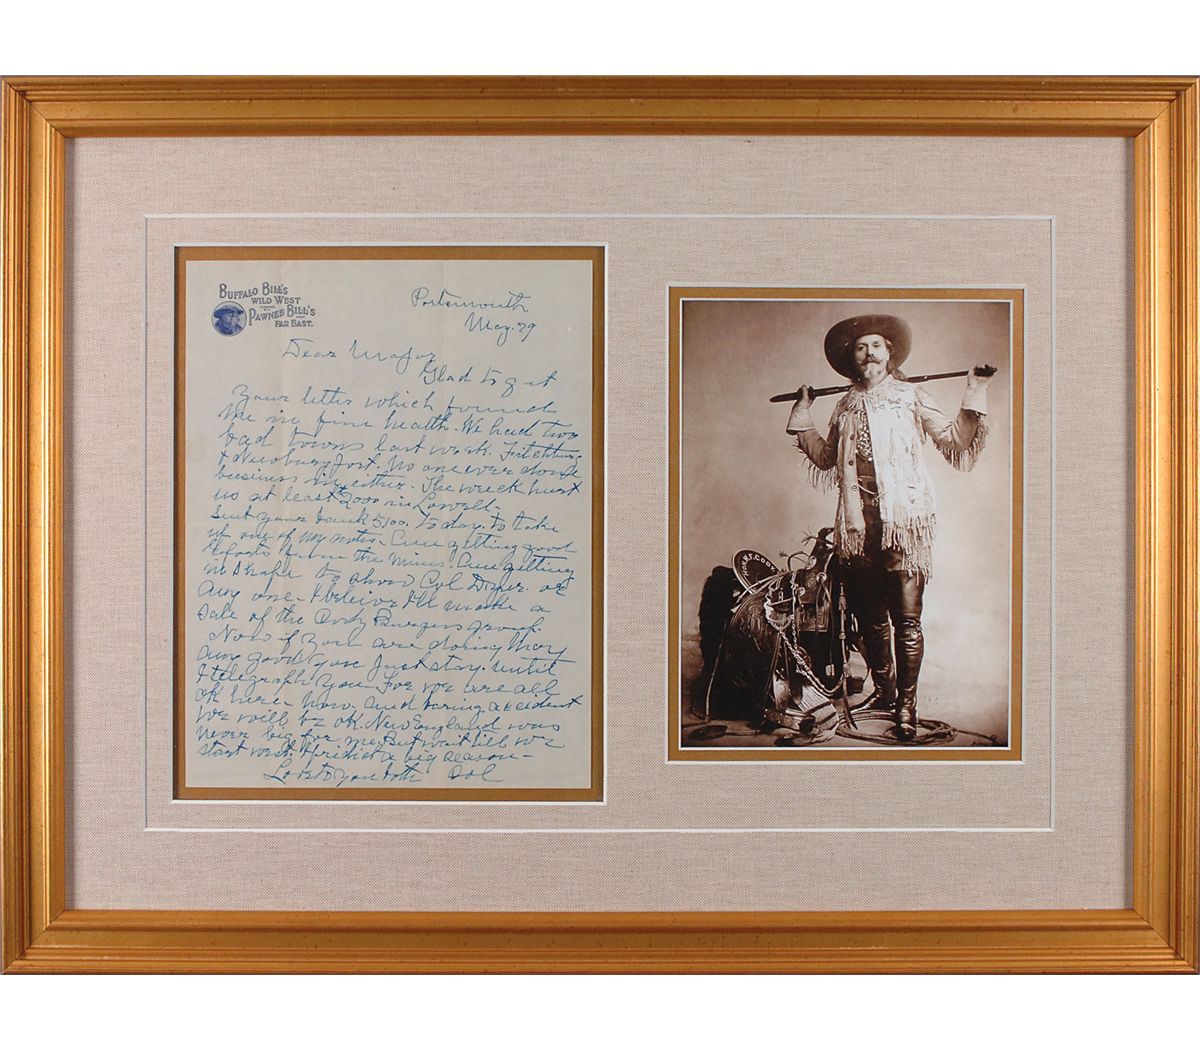 BUFFALO BILL'S
WILD WEST
PAWNEE BILL'S
FAR EAST.
Portsmouth
May. 29
Dear Major
Glad to get
Your letter which found
me in fine health. We had two
bad towns last week. Fitchburg
& Newburyport. No one ever done
business in either. The wreck hurt
us at least 2000 in Lowell-
Sent your bank 5,100. To day. to take
up one of my notes- Am getting good
reports from the mines. Am getting
in shape to show Col Draper or
any one- I beleive I'll make a
sale of the group.
Now if You are doing May
any good you just stay. until
I telegraph You For we are all
ok here- now. and baring accident
we will be ok. New England was
never big for me. But wait till we
start west. I predict a big season-
Love to you both Col